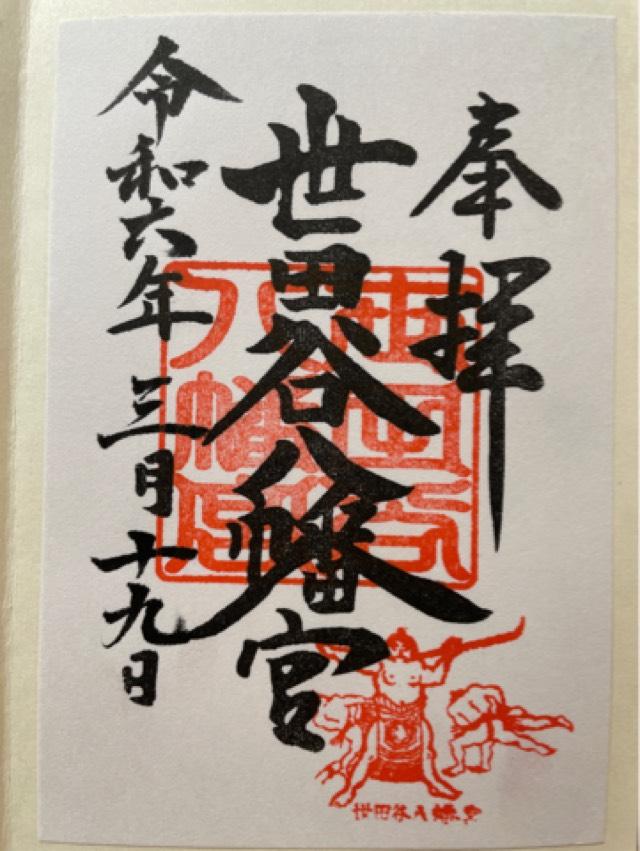 奉拝
世田谷八幡宮
令和六年三月十九日
世田谷八幡宮
世田谷八幡宮